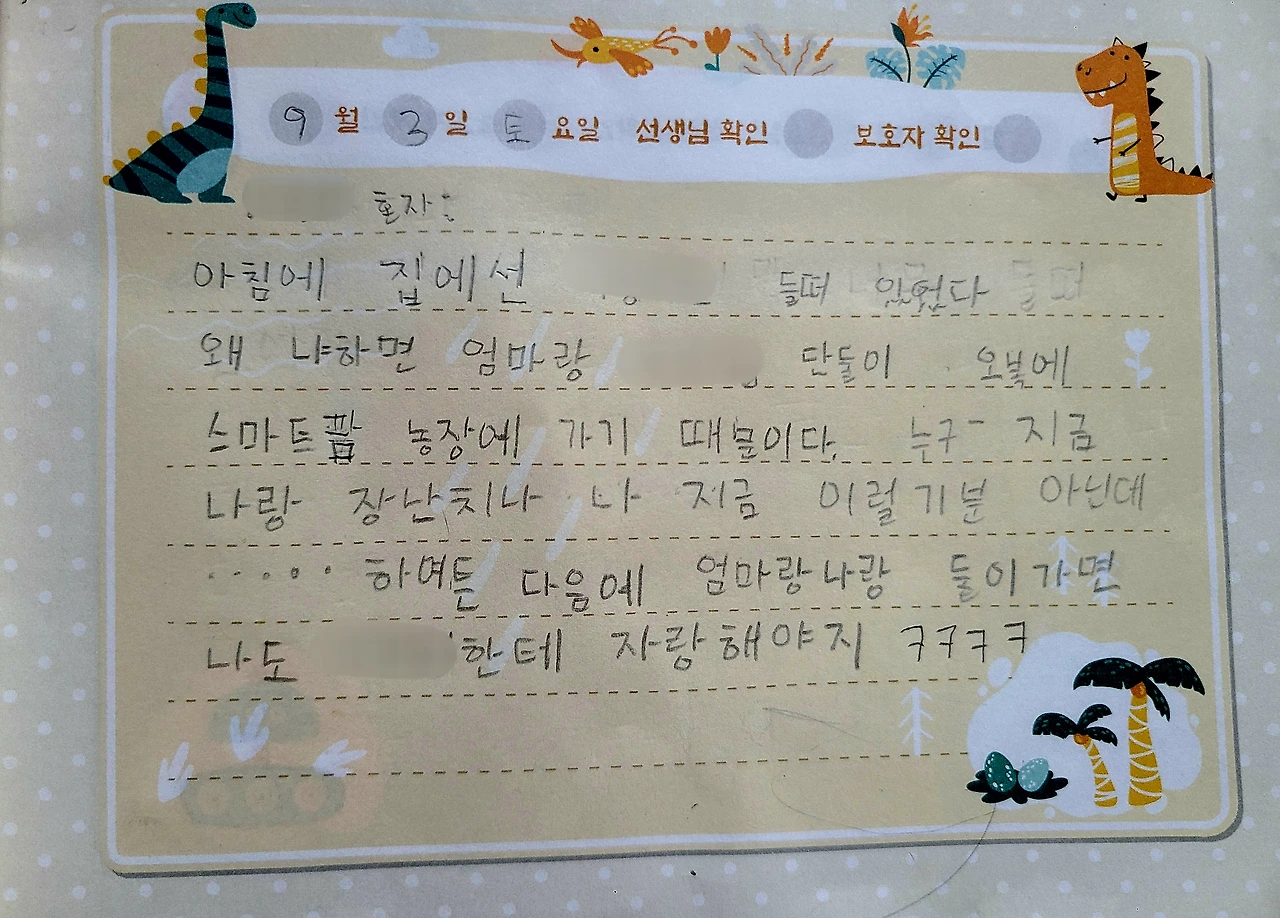 9월 3일 토요일 선생님 확인 보호자 확인
혼자:
아침에 집에선 들떠 있었다
왜 냐하면 엄마랑 단둘이 오붓에
스마트팜 농장에 가기 때문이다. 누구 지금
나랑 장난치나 나 지금 이럴기분 아닌데
····· 하여튼 다음에 엄마랑나랑 둘이가면
나도 한테 자랑해야지 ㅋㅋㅋㅋ